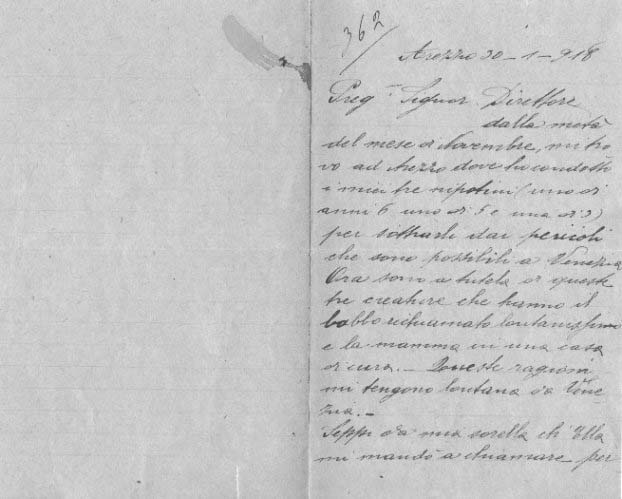 362
Arezzo 30-1-918
Preg. Signor Direttore
dalla metà
del mese di Novembre, mi tro
vo ad Arezzo dove ho condotti
i miei tre nipotini (uno di
anni 6 uno di 5 e una di 3)
per sottrarli dai pericoli
che sono possibili a Venezia
Ora sono a tutela di queste
tre creature che hanno il
babbo richiamato lontanissimo
e la mamma in una casa
di cura. – Queste ragioni
mi tengono lontana da Vene
zia. –
Seppi da mia sorella ch'Ella
mi mandò a chiamare per